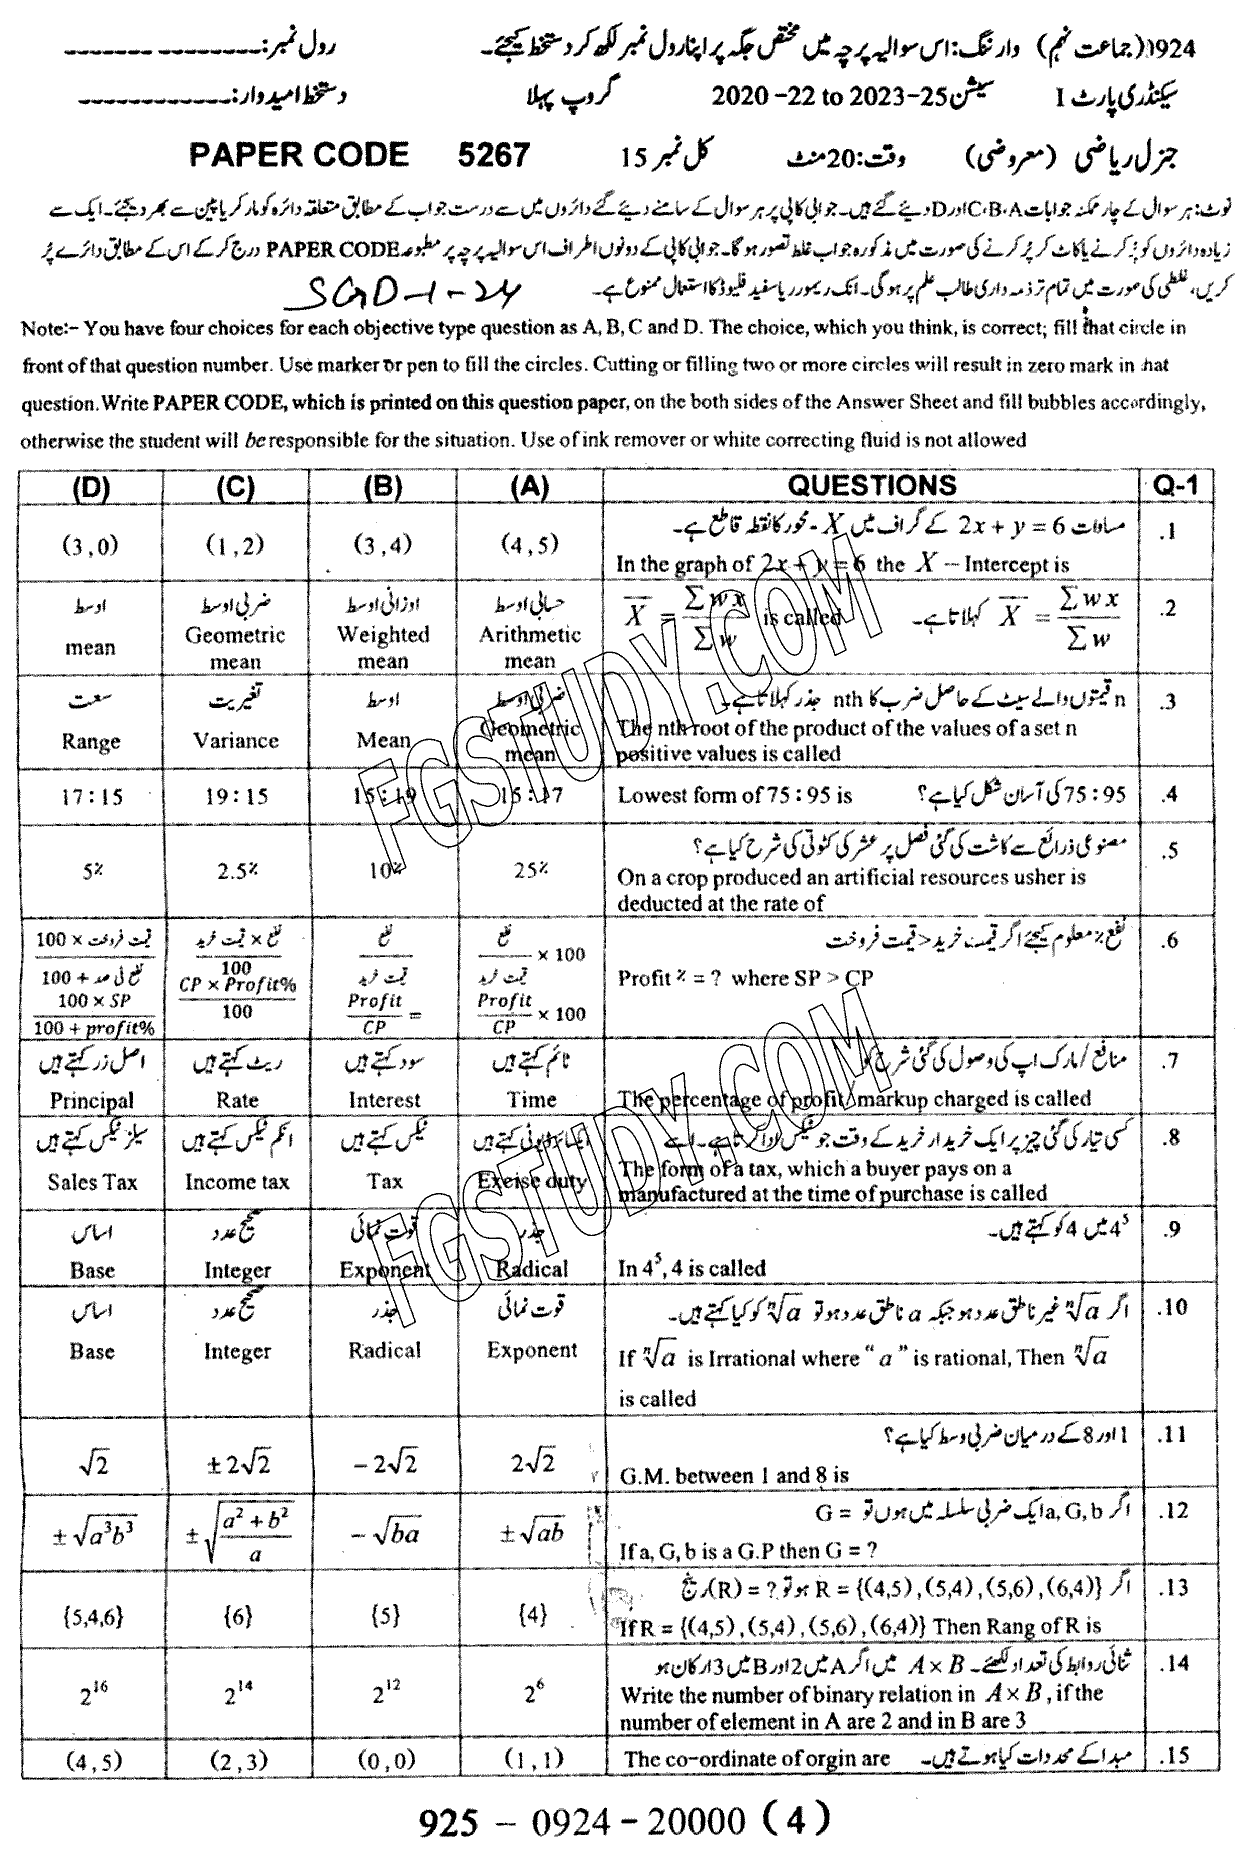 1924(جماعت نہم) وارننگ: اس سوالیہ پرچہ میں مختص جگہ پر اپنا رول نمبر لکھ کر دستخط کیجئے۔ رول نمبر:
سیکنڈری پارٹ I سیشن 2020 -22 to 2023-25 گروپ پہلا دستخط امیدوار:
جنرل ریاضی (معروضی) وقت: 20 منٹ کل نمبر 15 PAPER CODE 5267
نوٹ: ہر سوال کے چار ممکنہ جوابات A، B، C اور D دیئے گئے ہیں۔ جوابی کاپی پر ہر سوال کے سامنے دیئے گئے دائروں میں سے درست جواب کے مطابق متعلقہ دائرہ کو مارکر یا پین سے بھر دیجئے۔ ایک سے
زیادہ دائروں کو پُر کرنے یا کاٹ کر پُر کرنے کی صورت میں مذکورہ جواب غلط تصور ہوگا۔ جوابی کاپی کے دونوں اطراف اس سوالیہ پرچہ پر مطبوعہ PAPER CODE درج کرکے اس کے مطابق دائرے پُر
کریں، غلطی کی صورت میں تمام تر ذمہ داری طالب علم پر ہوگی۔ انک ریمور یا سفید فلیوڈ کا استعمال ممنوع ہے۔ SGD-1-24
Note:- You have four choices for each objective type question as A, B, C and D. The choice, which you think, is correct; fill that circle in
front of that question number. Use marker or pen to fill the circles. Cutting or filling two or more circles will result in zero mark in that
question. Write PAPER CODE, which is printed on this question paper, on the both sides of the Answer Sheet and fill bubbles accordingly,
otherwise the student will be responsible for the situation. Use of ink remover or white correcting fluid is not allowed
(D) (C) (B) (A) QUESTIONS Q-1
مساوات 2x + y = 6 کے گراف میں X - محور کا نقطہ قاطع ہے۔ .1
(3,0) (1,2) (3,4) (4,5)
In the graph of 2x + y = 6 the X – Intercept is
اوسط ضربی اوسط اوزانی اوسط حسابی اوسط
X̄ = Σwx / Σw is called X̄ = Σwx / Σw کہلاتا ہے۔ .2
mean Geometric mean Weighted mean Arithmetic mean
سعت تغیریت اوسط ضربی اوسط
n قیمتوں والے سیٹ کے حاصل ضرب کا nth جذر کہلاتا ہے۔ .3
Range Variance Mean Geometric mean
The nth root of the product of the values of a set n
positive values is called
17:15 19:15 15:19 15:17 Lowest form of 75:95 is 75:95 کی آسان شکل کیا ہے؟ .4
مصنوعی ذرائع سے کاشت کی گئی فصل پر عشر کی کٹوتی کی شرح کیا ہے؟ .5
5% 2.5% 10% 25%
On a crop produced an artificial resources usher is
deducted at the rate of
نفع % معلوم کیجئے اگر قیمت خرید < قیمت فروخت .6
قیمت فروخت × 100 / نفع فی صد + 100 نفع × قیمت خرید / 100 نفع / قیمت خرید نفع / قیمت خرید × 100
Profit % = ? where SP > CP
100 × SP / 100 + profit% CP × Profit% / 100 Profit / CP = Profit / CP × 100
اصل زر کہتے ہیں ریٹ کہتے ہیں سود کہتے ہیں ٹائم کہتے ہیں منافع/مارک اپ کی وصول کی گئی شرح کو .7
Principal Rate Interest Time The percentage of profit/markup charged is called
سیلز ٹیکس کہتے ہیں انکم ٹیکس کہتے ہیں ٹیکس کہتے ہیں ایکسائز ڈیوٹی کہتے ہیں کسی تیار کی گئی چیز پر ایک خریدار خرید کے وقت جو ٹیکس ادا کرتا ہے۔ اسے .8
Sales Tax Income tax Tax Exeise duty The form of a tax, which a buyer pays on a
manufactured at the time of purchase is called
اساس صحیح عدد قوت نمائی جذر 4⁵ میں 4 کو کہتے ہیں۔ .9
Base Integer Exponent Radical In 4⁵, 4 is called
اساس صحیح عدد جذر قوت نمائی اگر ⁿ√a غیر ناطق عدد ہو جبکہ a ناطق عدد ہو تو ⁿ√a کو کیا کہتے ہیں۔ .10
Base Integer Radical Exponent If ⁿ√a is Irrational where "a" is rational, Then ⁿ√a
is called
1 اور 8 کے درمیان ضربی وسط کیا ہے؟ .11
√2 ±2√2 −2√2 2√2 G.M. between 1 and 8 is
اگر a, G, b ایک ضربی سلسلہ میں ہوں تو G = .12
±√a³b³ ±√((a² + b²)/a) −√ba ±√ab If a, G, b is a G.P then G = ?
اگر R = {(4,5),(5,4),(5,6),(6,4)} ہو تو ? = (R) رینج .13
{5,4,6} {6} {5} {4} If R = {(4,5),(5,4),(5,6),(6,4)} Then Rang of R is
ثنائی روابط کی تعداد لکھئے۔ A×B میں اگر A میں 2 اور B میں 3 ارکان ہو .14
2¹⁶ 2¹⁴ 2¹² 2⁶ Write the number of binary relation in A×B, if the
number of element in A are 2 and in B are 3
(4,5) (2,3) (0,0) (1,1) The co-ordinate of orgin are مبدا کے محددات کیا ہوتے ہیں۔ .15
925 – 0924 – 20000 (4)
FGSTUDY.COM
FGSTUDY.COM